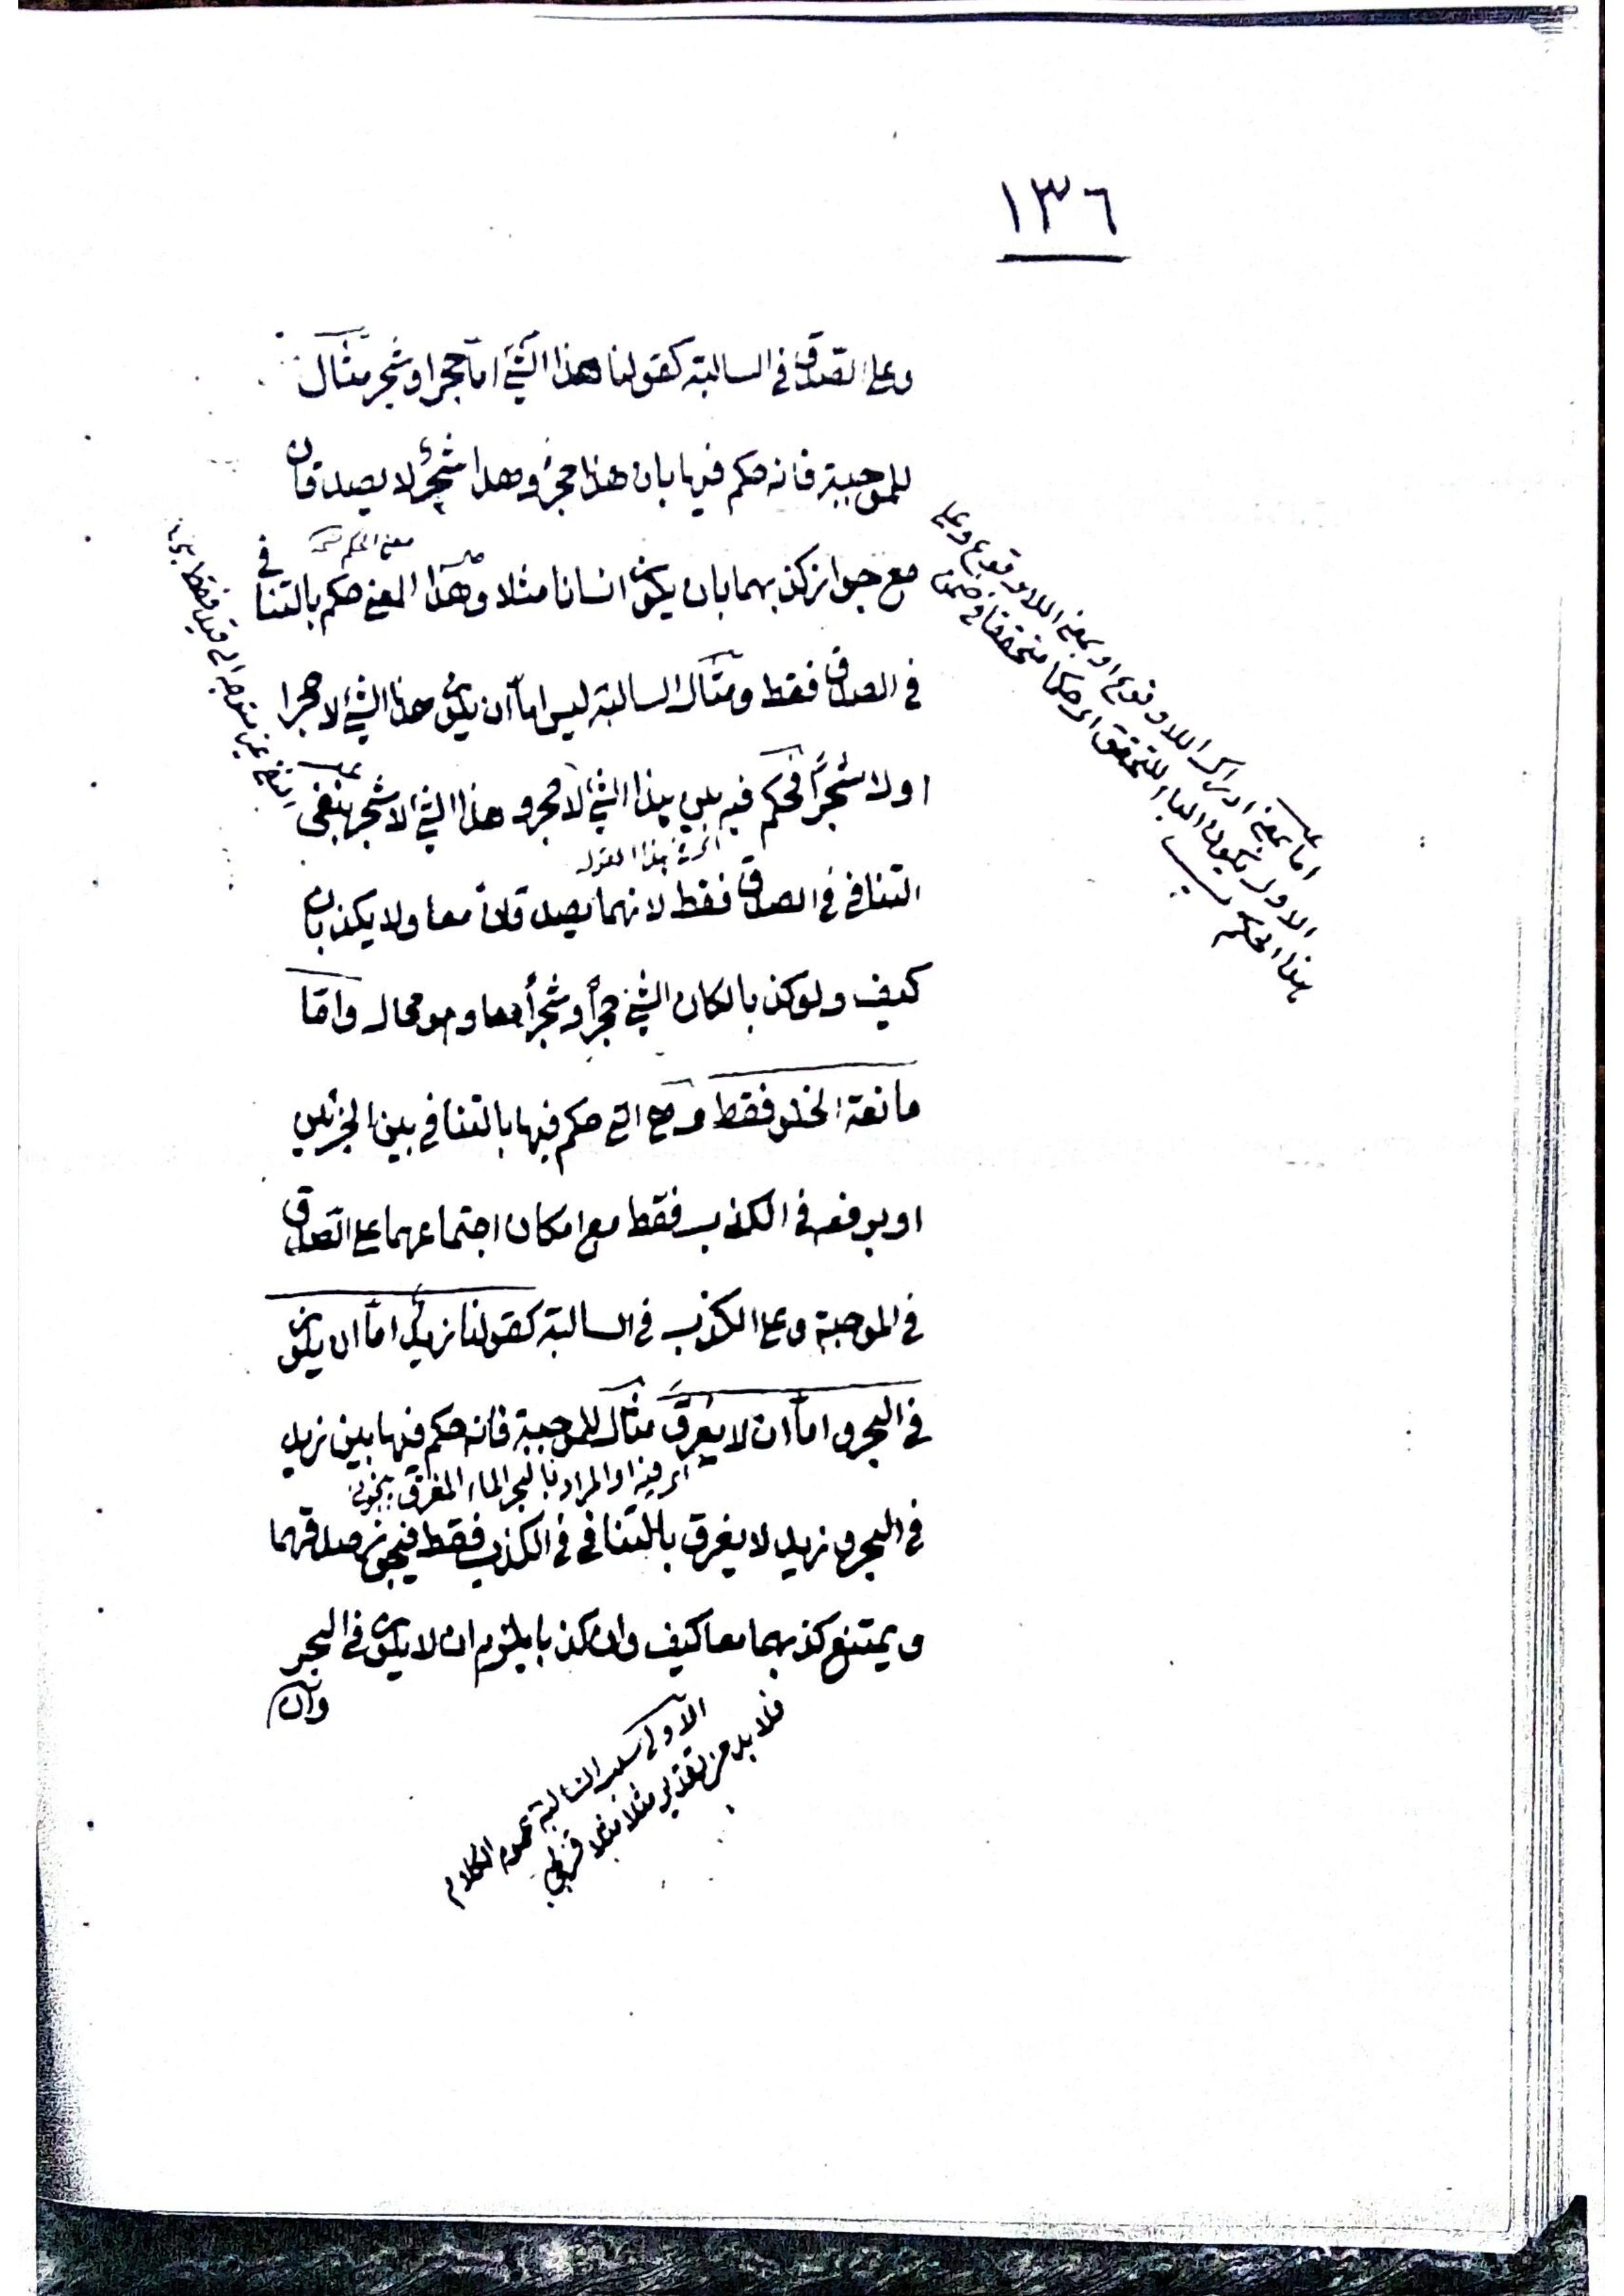 ١٣٦
وعلى الصدق في السالبة كقولنا هذا الشئ اما حجر او شجر مثال
للموجبة فانه حكم فيها بان هذا حجر وهذا شجر لا يصدقان
مع جواز كذبهما بان يكون انسانا مثلا وهذا المعنى حكم بالتنافي
في الصدق فقط ومثال السالبة ليس اما ان يكون هذا الشئ لا حجرا
او لا شجرا فحكم فيه بين هذا الشئ لا حجر وهذا الشئ لا شجر بنفى
التنافي في الصدق فقط لانهما يصدقان معا ولا يكذبان
كيف ولو كذبا لكان الشئ حجرا وشجرا معا وهو محال واما
مانعة الخلو فقط وهي التي حكم فيها بالتنافي بين الجزئين
او برفعه في الكذب فقط مع امكان اجتماعهما على الصدق
في الموجبة وعلى الكذب في السالبة كقولنا زيد اما ان يكون
في البحر واما ان لا يغرق مثال للموجبة فانه حكم فيها بين زيد
في البحر وزيد لا يغرق بالتنافي في الكذب فقط فيجوز صدقهما
ويمتنع كذبهما معا كيف وان كذبا يلزم ان لا يكون في البحر
وان
معنى الحكم
اما بمعنى ادراك اللاوقوع او بمعنى اللاوقوع وعلى
الاول يكون الباء للتحقق اي حكما متحققا في ضمن
هذا الحكم
اي فيه اذ المراد بالبحر الماء المغرق
فلا بد من تقدير مثلا